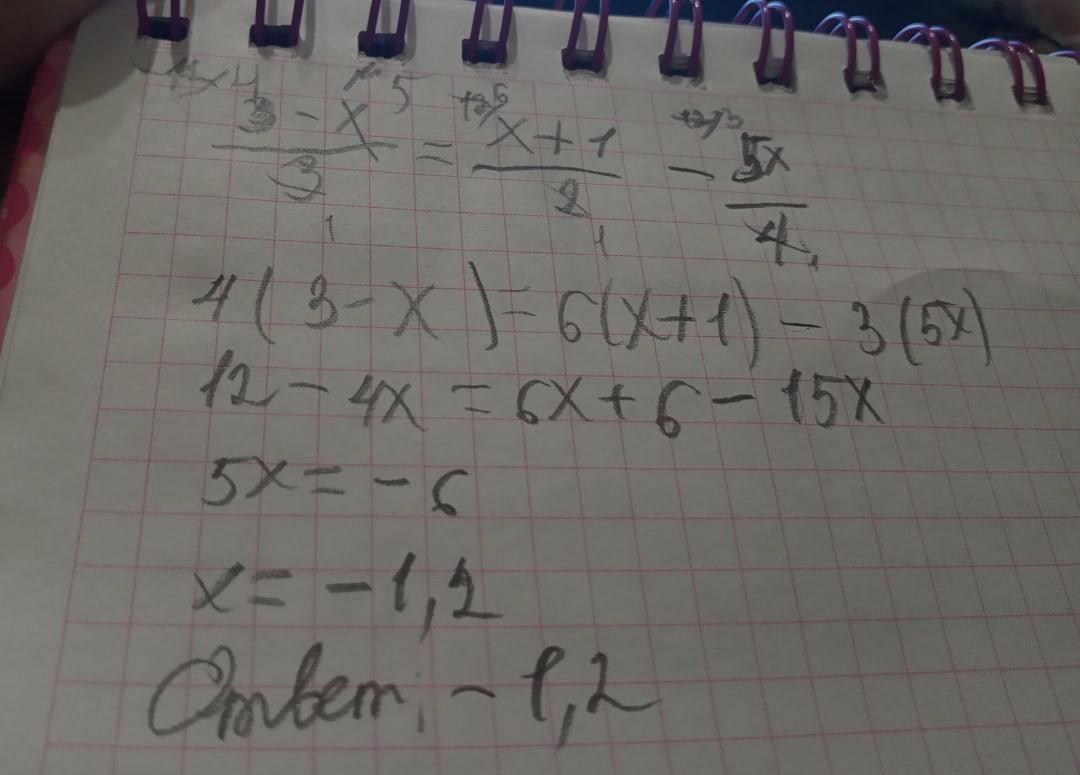 3 - x / 3 = x + 1 / 2 - 5x / 4
4(3 - x) = 6(x+1) - 3(5x)
12 - 4x = 6x + 6 - 15x
5x = -6
x = -1,2
Ответ: -1,2